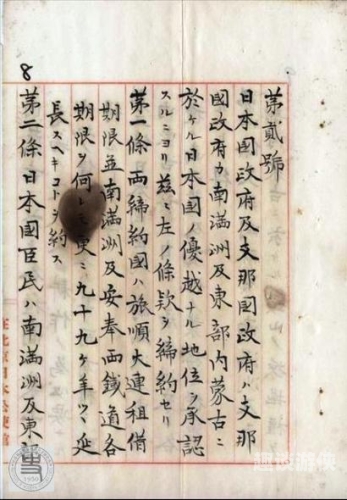 第貳號
日本國政府及支那國政府ハ支那
國政府カ南滿洲及東部内蒙古ニ
於ケル日本國ノ優越ナル地位ヲ承認
スルニヨリ茲ニ左ノ條款ヲ締約セリ
第一條 兩締約國ハ旅順大連租借
期限並南滿洲及安奉兩鐵道各
期限ヲ何レモ更ニ九十九ケ年ツヽ延
長スヘキコトヲ約ス
第二條 日本國臣民ハ南滿洲及東部
8
在北京日本公使館
趣谈游侠